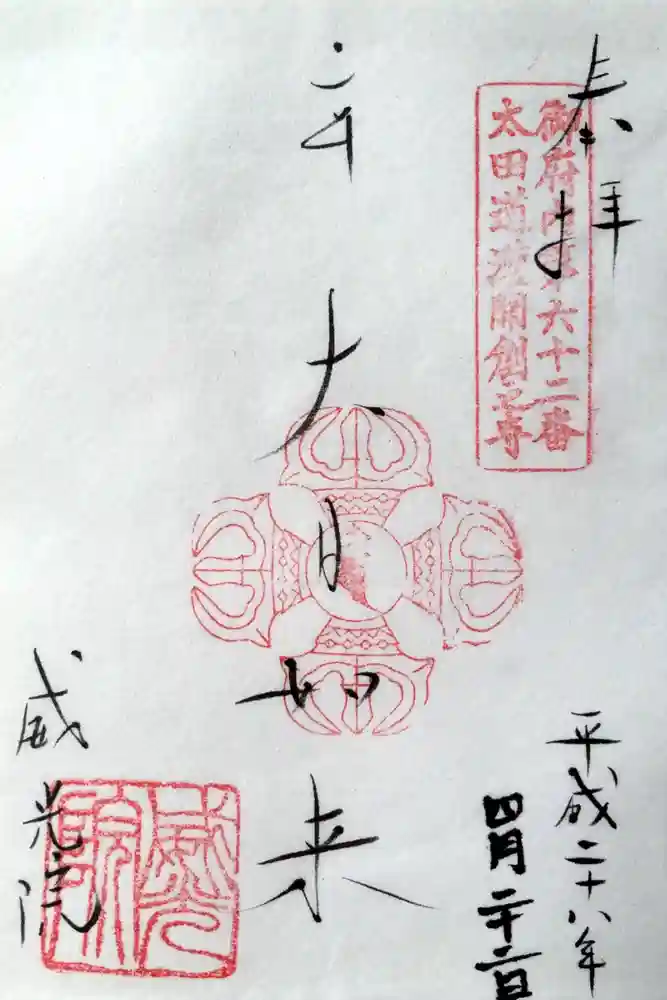 奉拝
御府内第六十二番
太田道灌開創之寺
大日如来
平成二十八年
四月二十二日
威光院
威光院